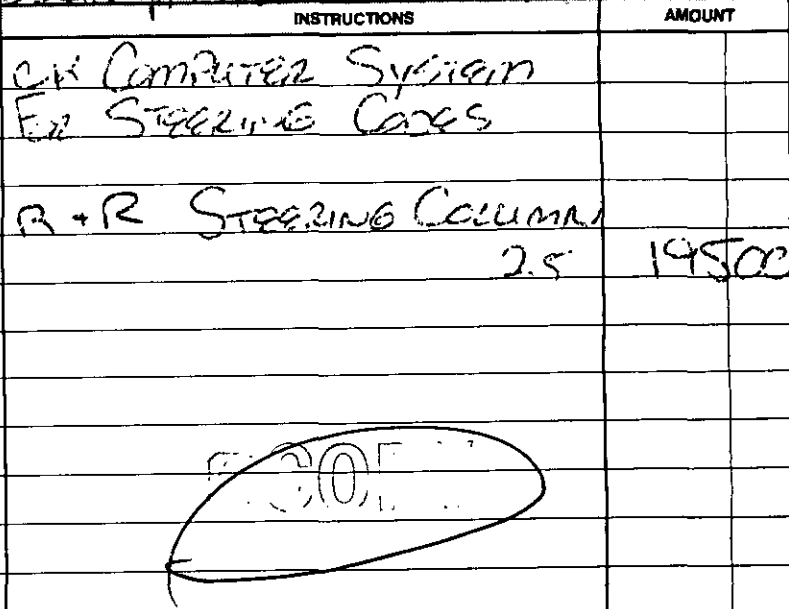 INSTRUCTIONS AMOUNT
CK COMPUTER SYSTEM
FOR STEERING CODES
R + R STEERING COLUMN
2.5 195 00